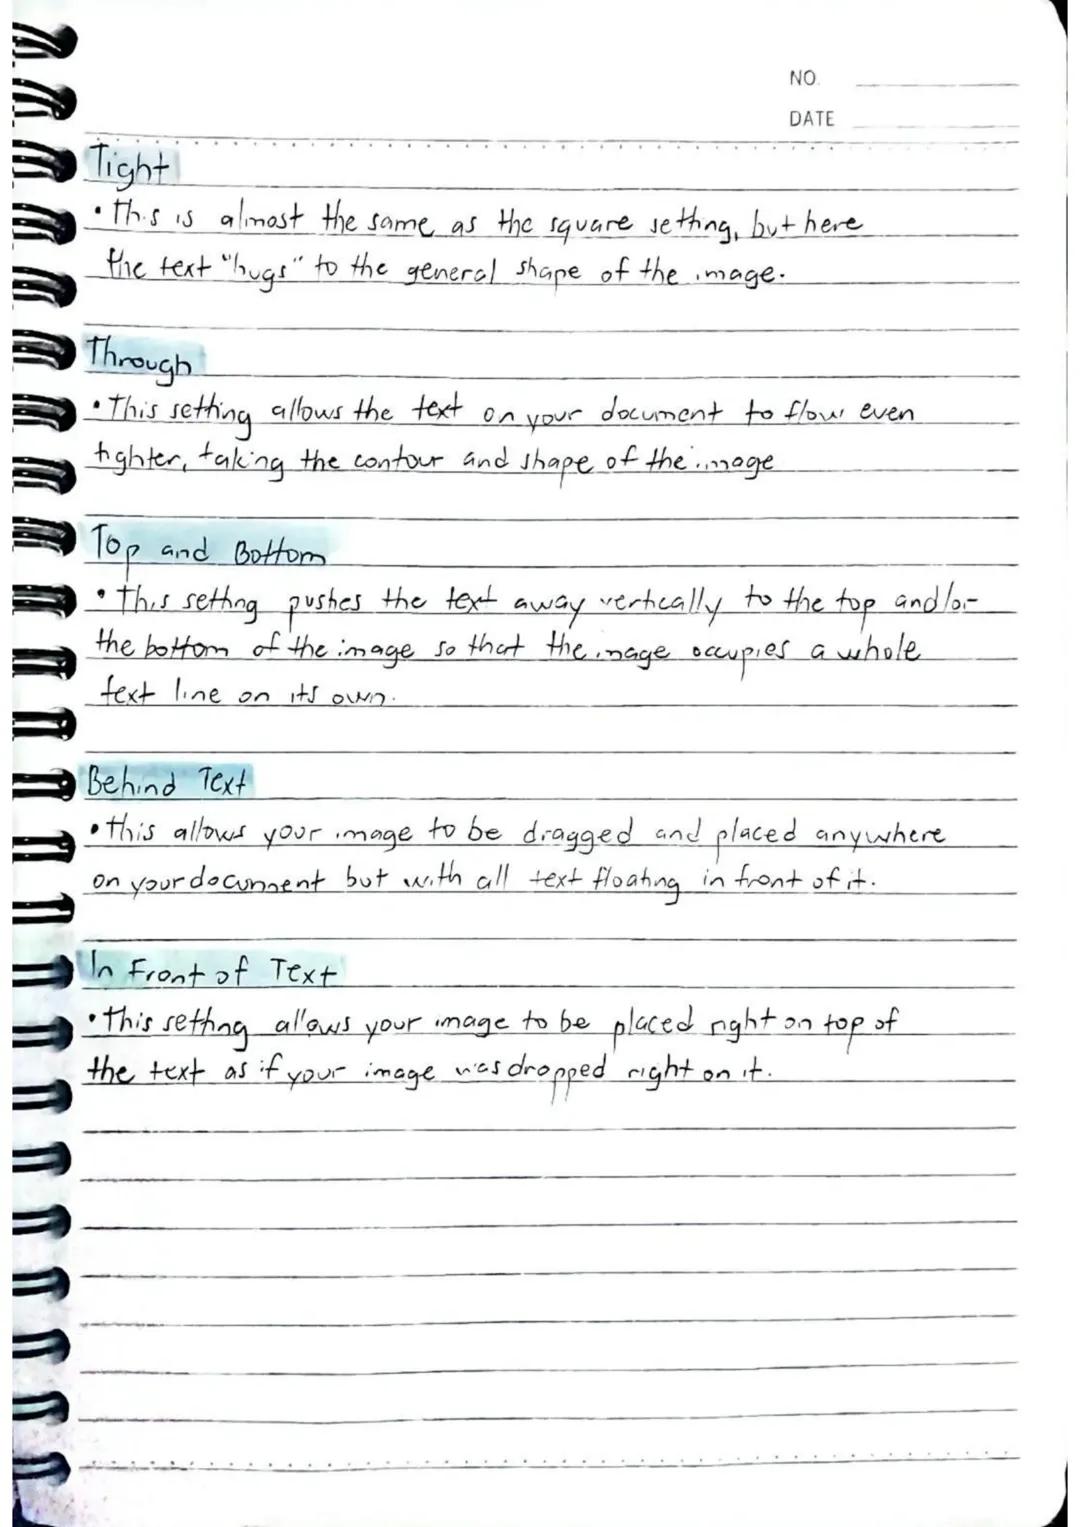 NO.
DATE
Tight
• This is almost the same as the square setting, but here
the text "hugs" to the general shape of the image.
Through
• This setting allows the text on your document to flow even
tighter, taking the contour and shape of the image
Top and Bottom
• This setting pushes the text away vertically to the top and/or
the bottom of the image so that the image occupies a whole
text line on its own.
Behind Text
• This allows your image to be dragged and placed anywhere
on your document but with all text floating in front of it.
In Front of Text
• This setting allows your image to be placed right on top of
the text as if your image was dropped right on it.